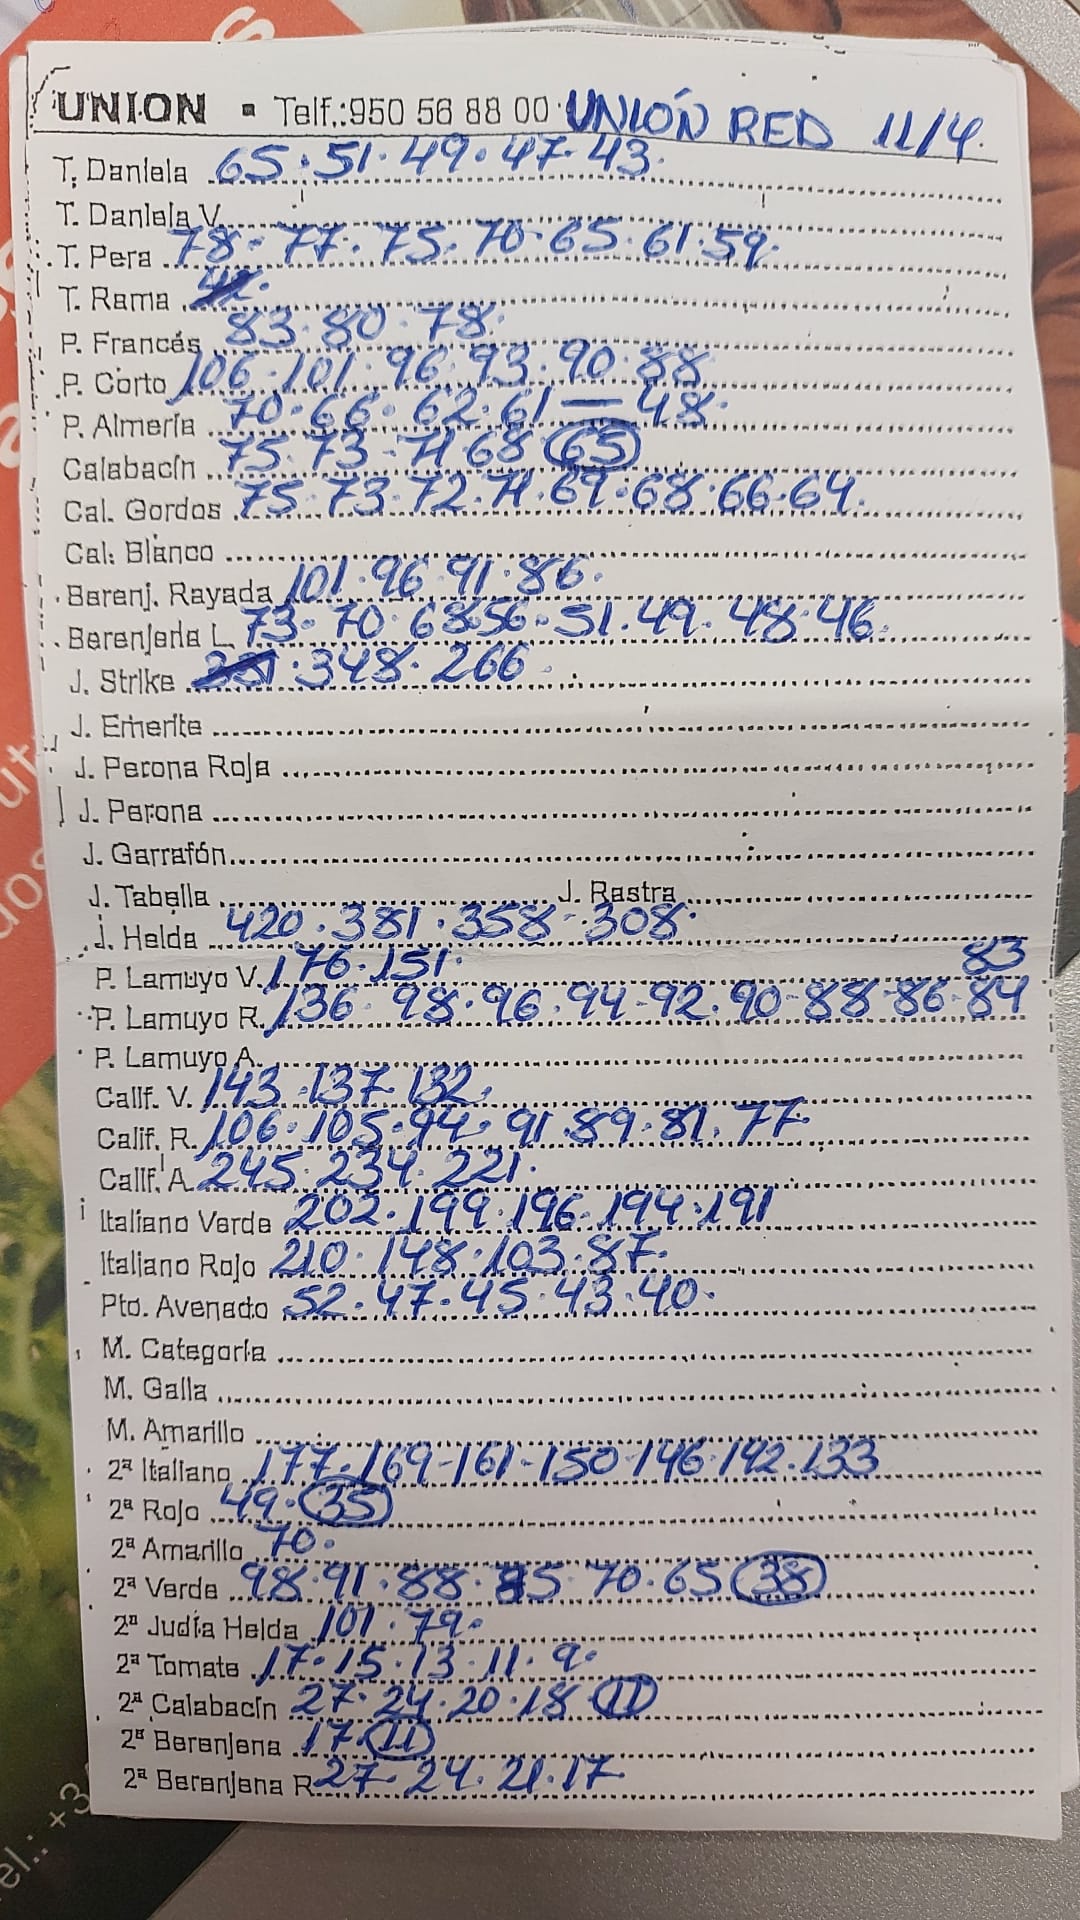 UNION - Telf.:950 56 88 00 UNIÓN RED 11/4.
T. Daniela 65.51.49.47.43.
T. Daniela V.
T. Pera 78.77.75.70.65.61.59.
T. Rama
P. Francés 83.80.78.
P. Corto 106.101.96.93.90.88
P. Almería 70.66.62.61—48.
Calabacín 75.73-71.68 65
Cal. Gordos 75.73.72.71.69.68.66.64.
Cal. Blanco
Berenj. Rayada 101.96.91.86.
Berenjena L 73.70.68.56.51.49.48.46.
J. Strike 348.266.
J. Emerite
J. Perona Roja
J. Perona
J. Garrafón
J. Tabella J. Rastra
J. Helda 420.381.358-308.
P. Lamuyo V. 176.151. 83
P. Lamuyo R. 136.98.96.94-92.90-88-86-84
P. Lamuyo A.
Calif. V. 143.137.132.
Calif. R. 106.105.94.91.89.81.77.
Calif. A. 245.234.221.
Italiano Verde 202.199.196.194.191
Italiano Rojo 210.148.103.87.
Pto. Avenado 52.47.45.43.40.
M. Categoría
M. Galia
M. Amarillo
2ª Italiano 177.169-161-150-146.142.133
2ª Rojo 49.35
2ª Amarillo 70.
2ª Verde 98.91.88. 70.65 38
2ª Judía Helda 101.79.
2ª Tomate 17.15.13.11.9.
2ª Calabacín 27.24.20.18 11
2ª Berenjena 17. 11
2ª Berenjena R 27.24.21.17